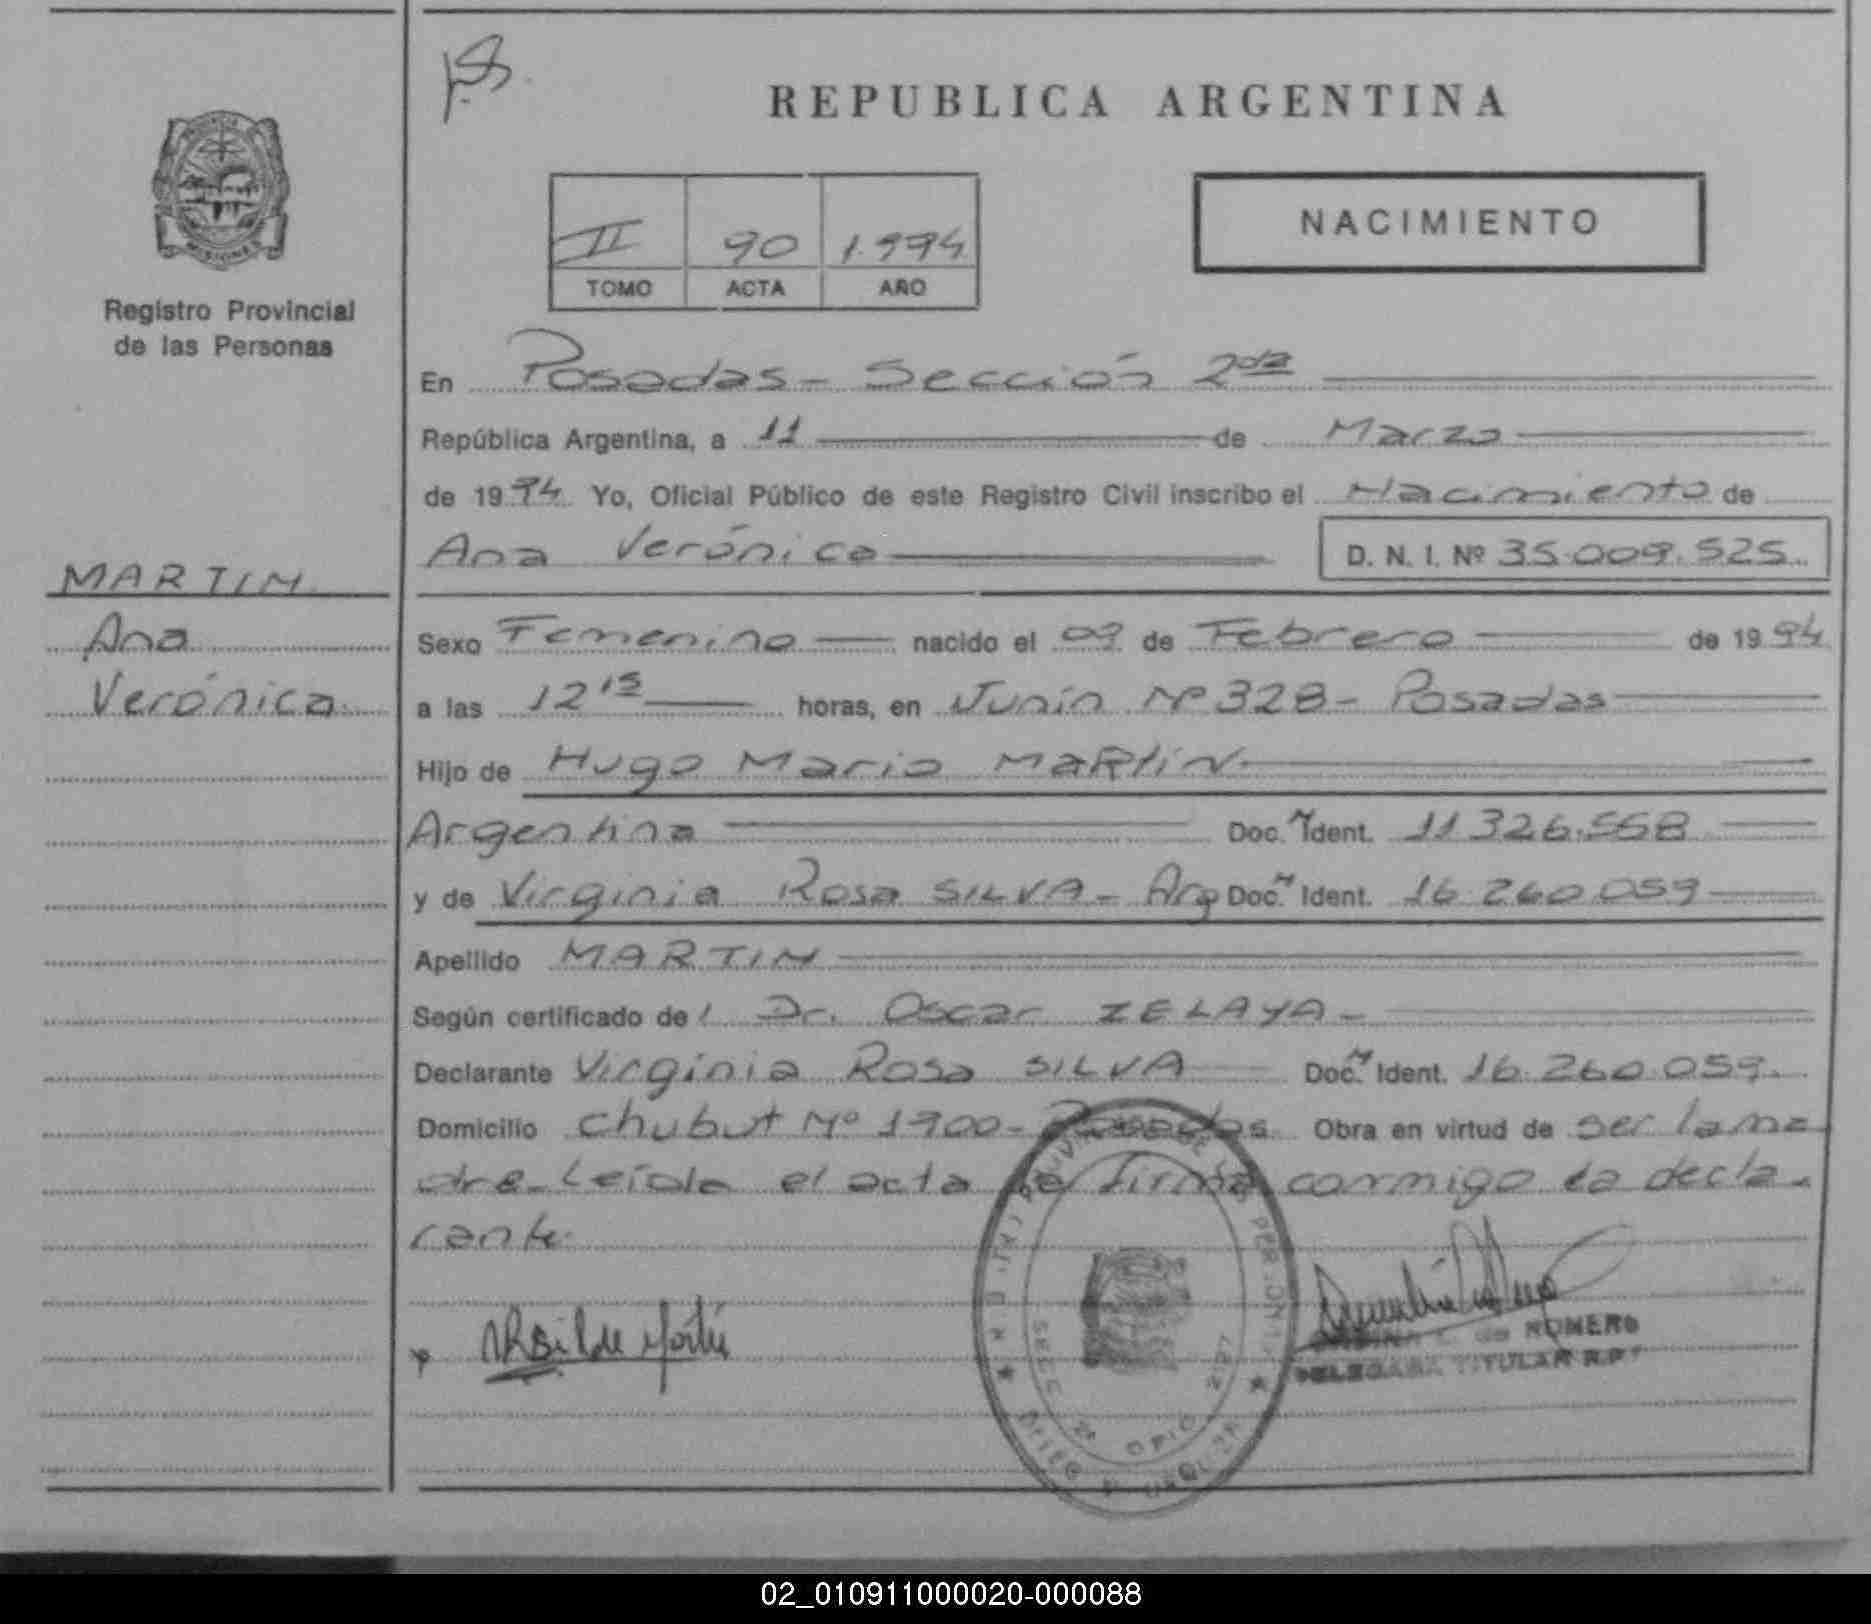 REPUBLICA ARGENTINA
PROVINCIA
MISIONES
Registro Provincial
de las Personas
II 90 1.994
TOMO ACTA AÑO
NACIMIENTO
En Posadas - Sección 2da
República Argentina, a 11 de Marzo
de 1994 Yo, Oficial Público de este Registro Civil inscribo el Nacimiento de
Ana Verónica D. N. I. Nº 35.009.525
MARTIN
Ana
Verónica
Sexo Femenino nacido el 09 de Febrero de 1994
a las 12 15 horas, en Junín Nº 328 - Posadas
Hijo de Hugo Mario MARtiN
Argentina Doc. N Ident. 11.326.558
y de Virginia Rosa SILVA - Arg Doc. N Ident. 16.260.059
Apellido MARTIN
Según certificado del Dr. Oscar ZELAYA -
Declarante Virginia Rosa SILVA Doc. N Ident. 16.260.059.
Domicilio Chubut Nº 1900 - Posadas Obra en virtud de ser la ma
dre - Leída el acta la firma conmigo la decla
rante.
de ROMERO
DELEGADA TITULAR R.P.
02_010911000020-000088